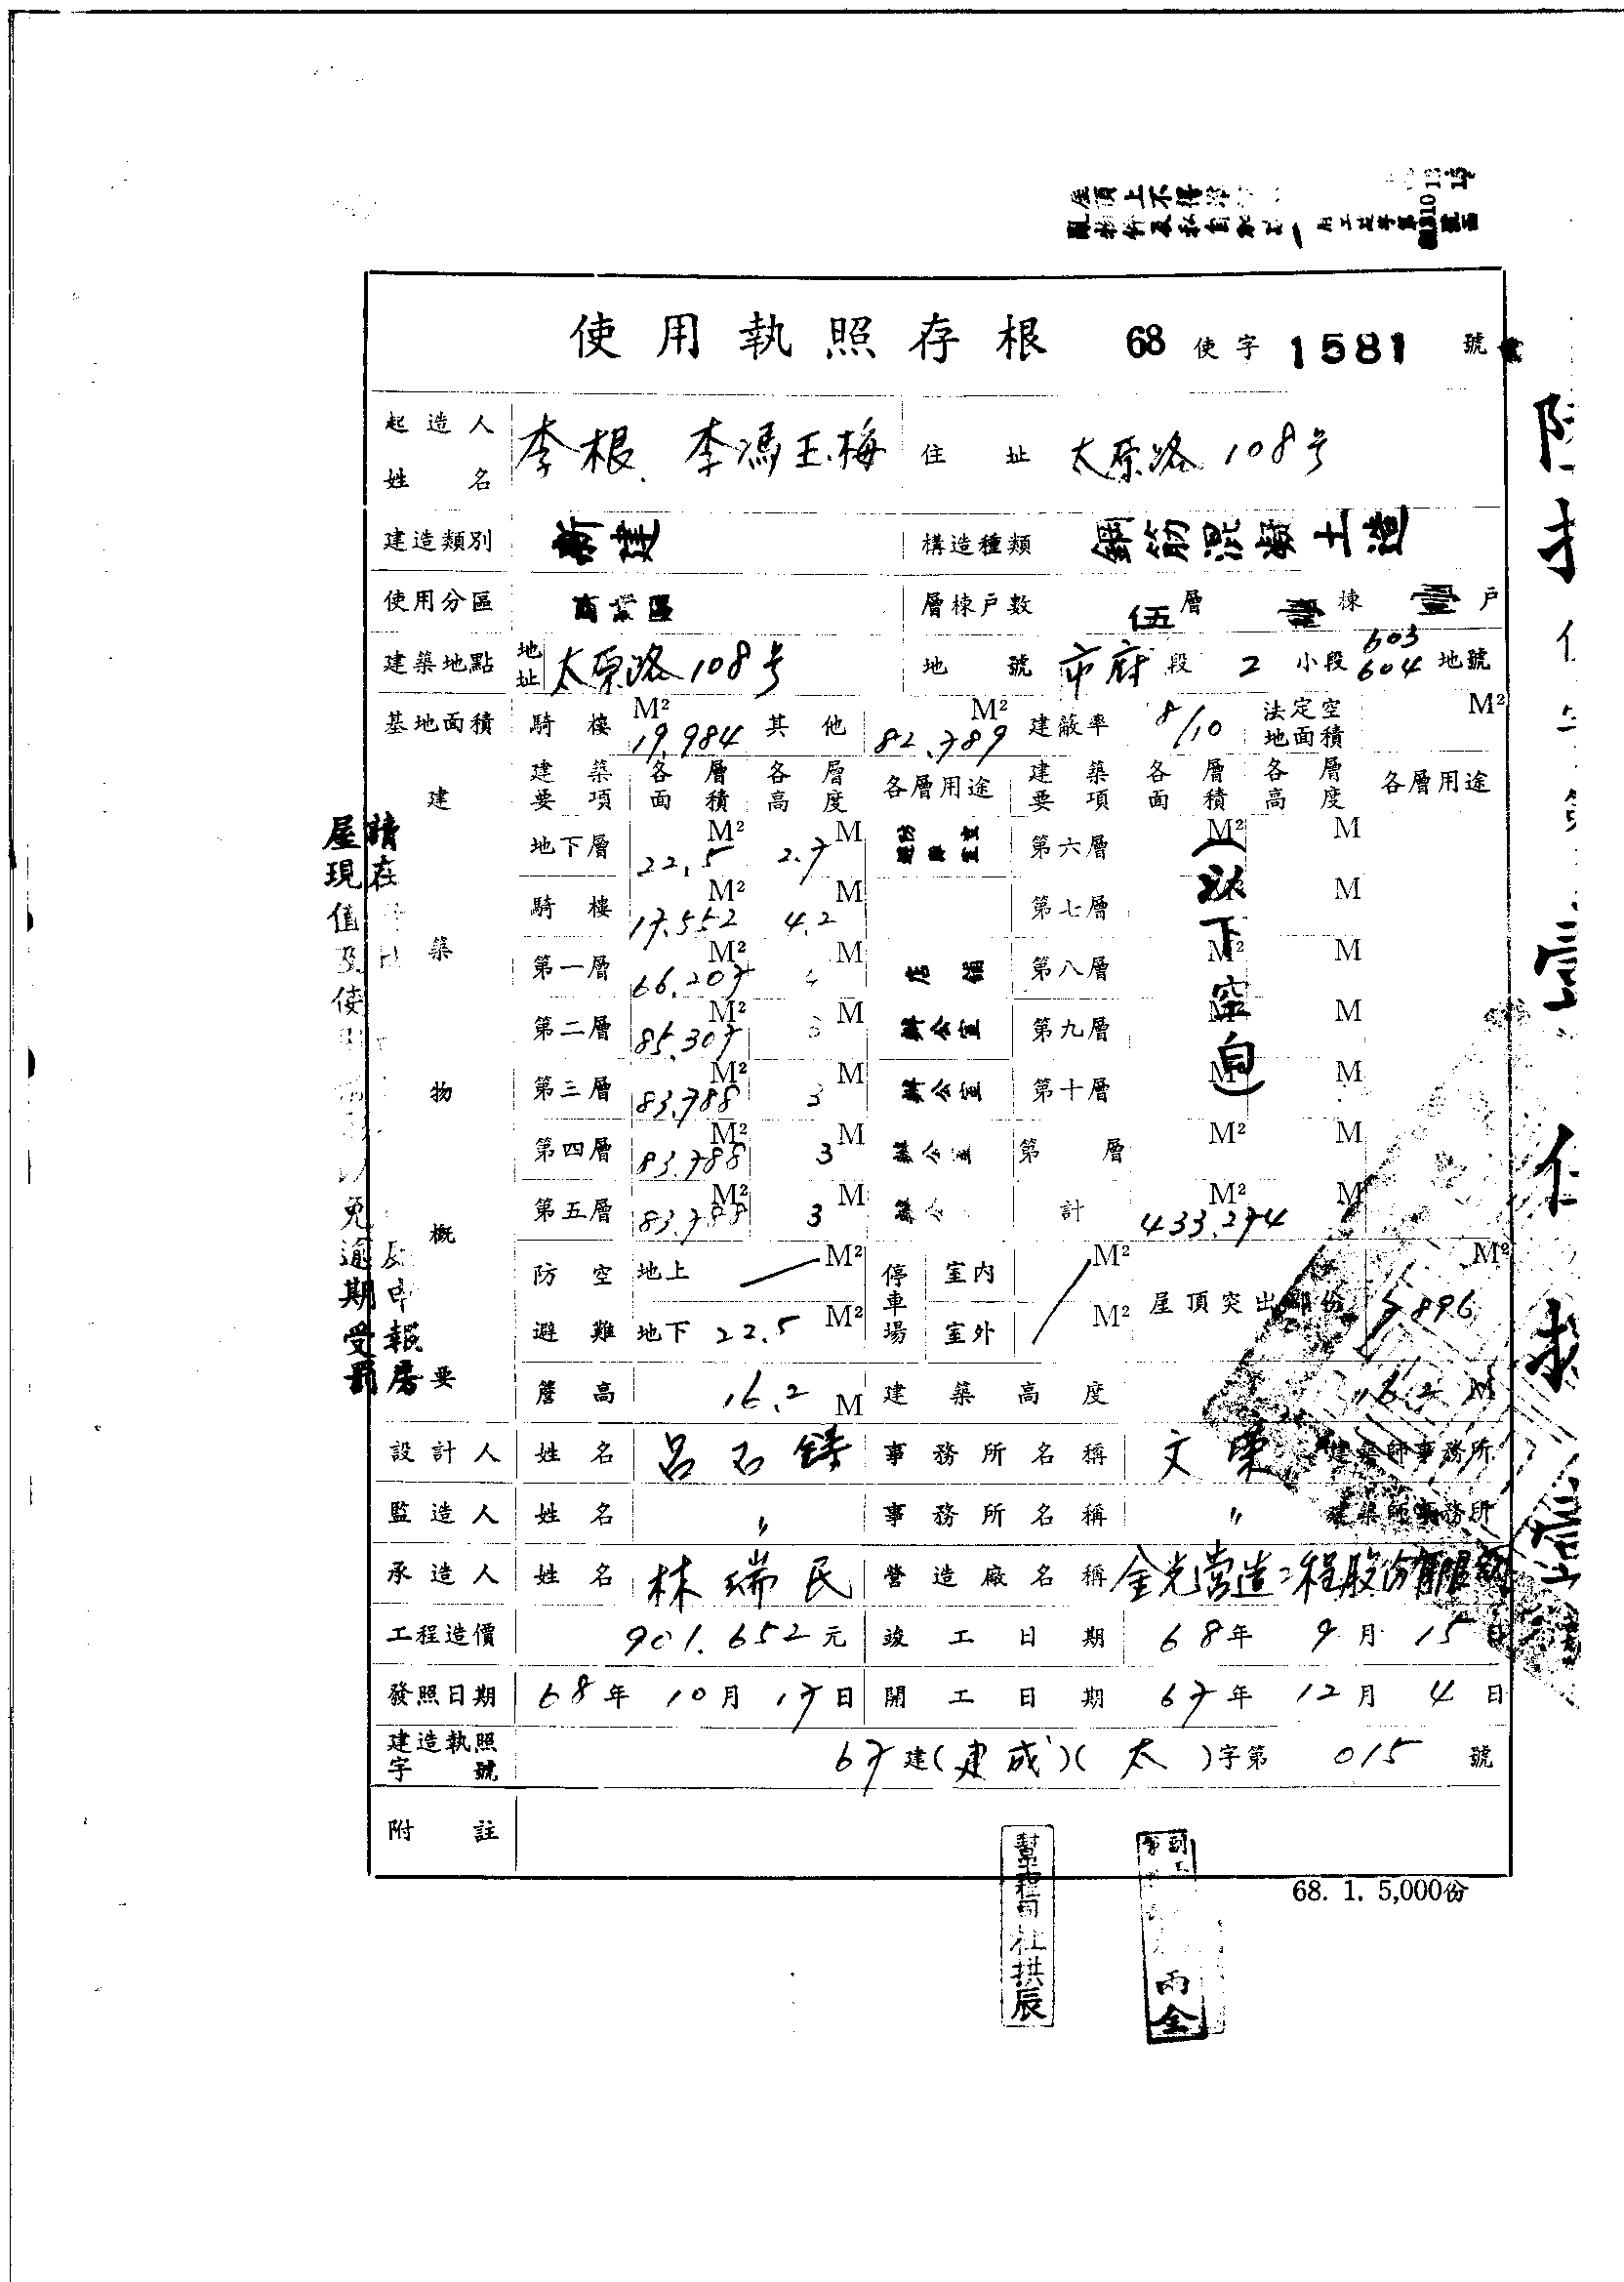 使用執照存根 68 使字 1581 號
起造人姓名 李根 李馮玉梅 住址 太原路108号
建造類別 新建 構造種類 鋼筋混凝土造
使用分區 商業區 層棟戶數 伍層 壹棟 壹戶
建築地點 地址 太原路108号 地號 市府段 2 小段 603 604 地號
基地面積 騎樓 19.984 M² 其他 82.789 M² 建蔽率 8/10 法定空地面積 M²
建築物概要
建築要項 各層面積 各層高度 各層用途 建築要項 各層面積 各層高度 各層用途
地下層 22.5 M² 2.7 M 第六層 M² M
騎樓 17.552 M² 4.2 M 第七層 M² M
第一層 66.207 M² M 店舖 第八層 M² M
第二層 85.307 M² 3 M 辦公室 第九層 M² M
第三層 83.788 M² 3 M 辦公室 第十層 M² M
第四層 83.788 M² 3 M 辦公室 第層 M² M
第五層 83.788 M² 3 M 辦公 計 433.274 M² M
(以下空白)
防空避難 地上 M² 停車場 室內 M² 屋頂突出部份 896 M²
地下 22.5 M² 室外 M²
簷高 16.2 M 建築高度 16.2 M
設計人 姓名 呂石鋳 事務所名稱 文東 建築師事務所
監造人 姓名 〃 事務所名稱 〃 建築師事務所
承造人 姓名 林瑞民 營造廠名稱 金光營造工程股份有限公司
工程造價 901.652元 竣工日期 68年 9月 15日
發照日期 68年 10月 17日 開工日期 67年 12月 4日
建造執照字號 67建(建成)(太)字第 015 號
附註
68. 1. 5,000份
杜拱辰
雨全